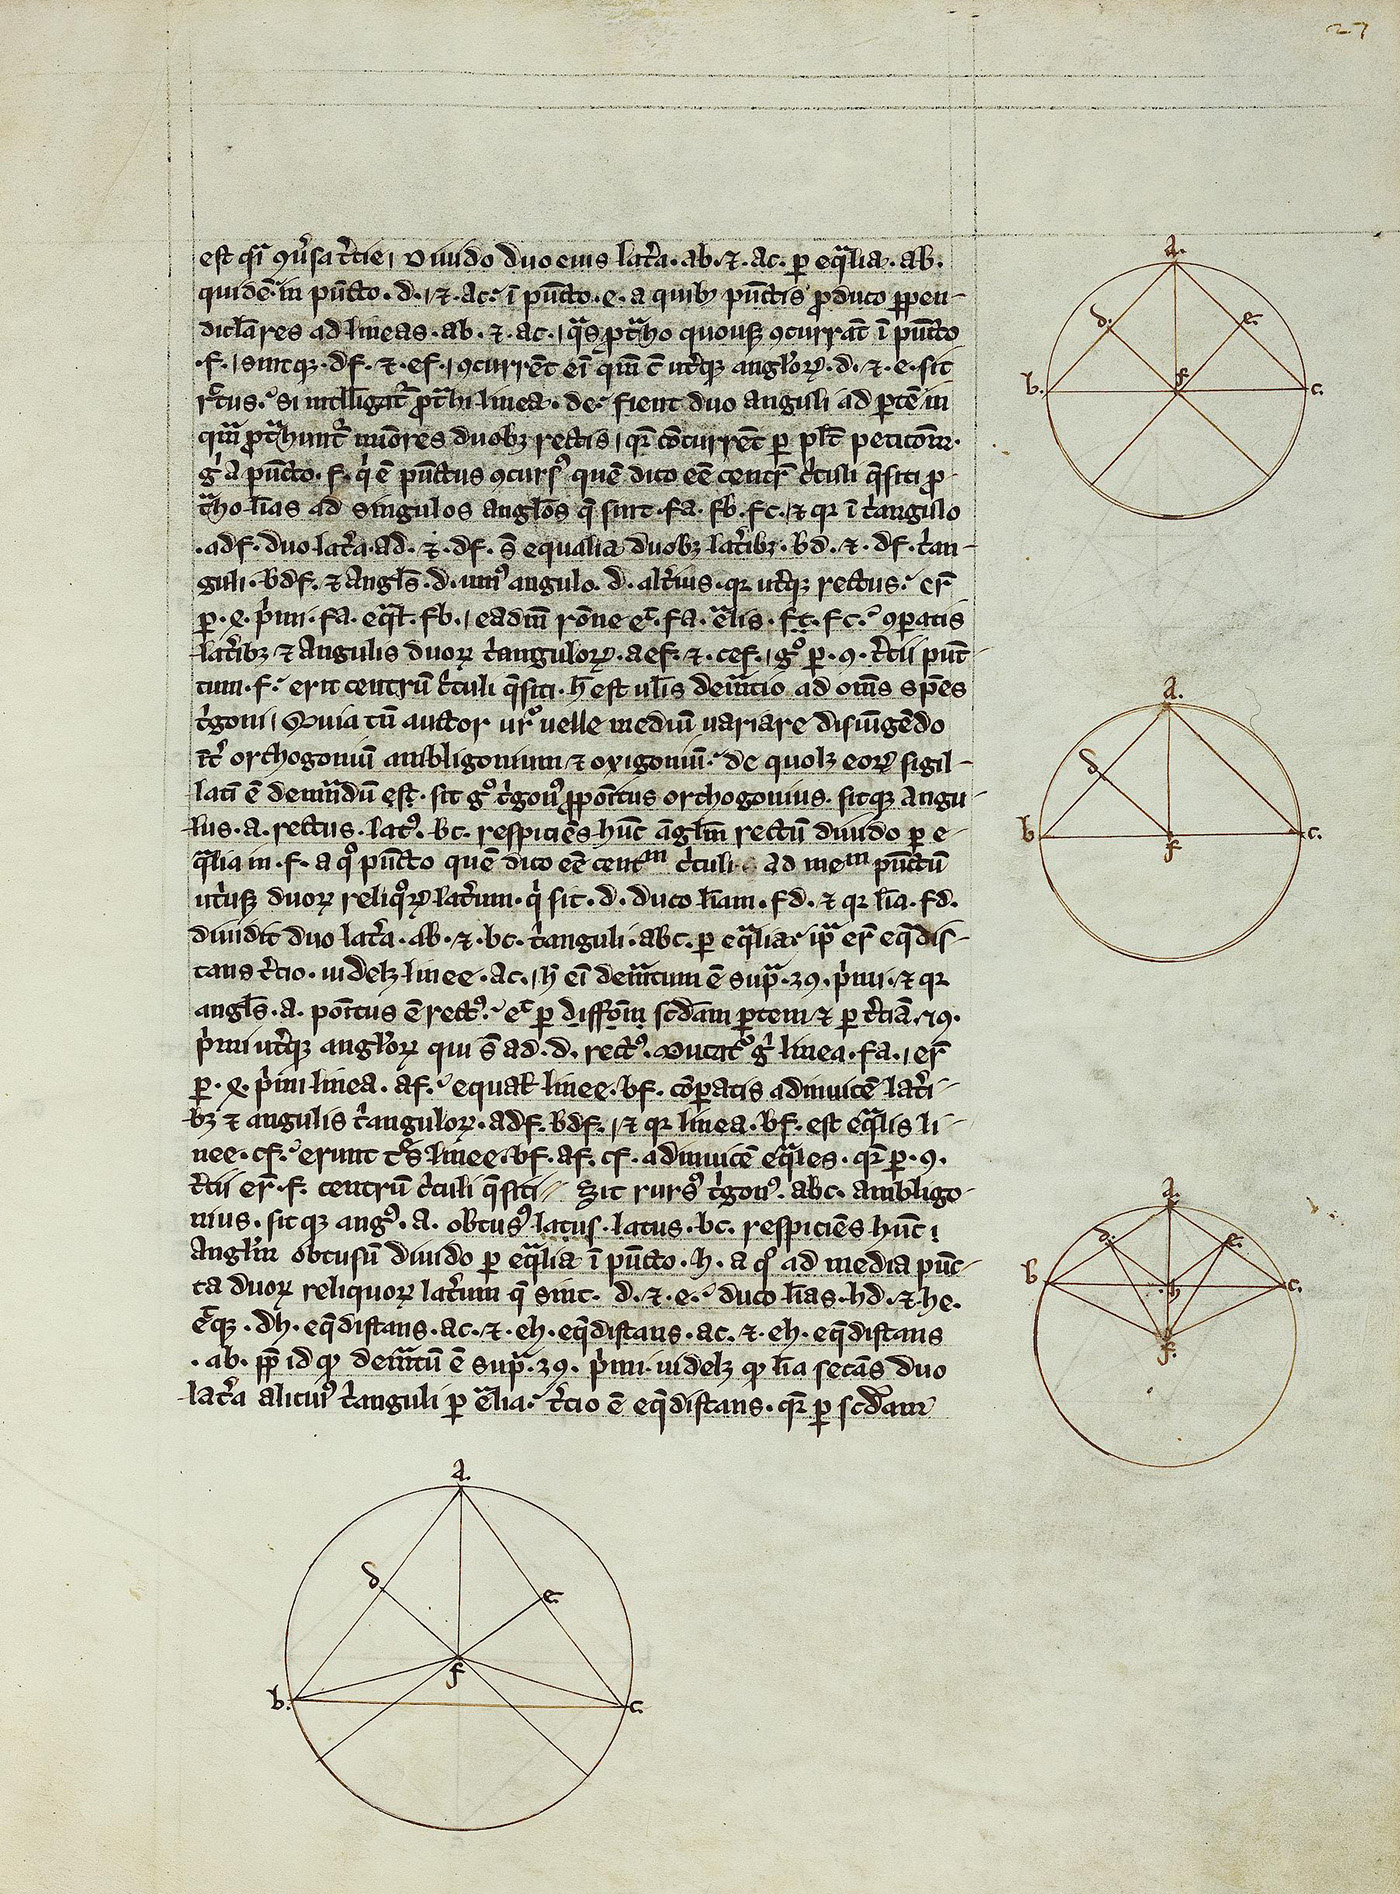 27
est q̄i ꝯv̓sa t̓cie diuido duo eius lat̓a · ab · ⁊ · ac · ꝑ eq̄lia · ab ·
quidē in pūcto · d · ⁊ · ac · ī pūcto · e · a quibꝫ pūctis ꝓduco ꝑpen-
dicl̄ares ad lineas · ab · ⁊ · ac · q̄s ꝓt̄ho quousqꝫ ꝯcurrāt ī pūcto
· f · sintqꝫ · df · ⁊ · ef · ꝯcurrēt eī qm̄ ut̓qꝫ angl̓oꝝ · d · ⁊ · e · sit
rectus · si intelligat̓ ꝓt̄hi linea · de · fient duo anguli ad ꝑtē in
quā ꝓt̄hunt̓ minores duobꝫ rectis qr̄ cōcurrēt ꝑ petitōm̄ ·
g̓ a pūcto · f · q̓ ē pūctus ꝯcurs quē dico eē centr̄ c̓culi q̄siti ꝓ-
t̄ho līas ad singulos angl̄os q̄ sint · fa · fb · fc · ⁊ qꝛ ī t̓angulo
· adf · duo lat̓a · ad · ⁊ · df · s̄t equalia duobꝫ lat̓ibꝫ · bd · ⁊ · df · t̓an-
guli · bdf · ⁊ angl̄s · d · uni᷒ angulo · d · alt̓ius · qꝛ ut̓qꝫ rectus · er̄
ꝑ · 4 · p̓mi · fa · eq̄l · fb · eadem rōne · fa · eq̄lis · fc · ꝯꝑatis
lat̓ibꝫ ⁊ angulis duoꝝ t̓anguloꝝ · aef · ⁊ · cef · g᷒ ꝑ · 9 · t̓cii pūc-
tum · f · erit centrū c̓culi q̄siti · h̄ est ul̄is dem̄tio ad om̄s spēs
t̓goni Quia tn̄ auctor ur̄ velle mediū uariare disiūgēdo
int̓ orthogoniū ambligonium ⁊ oxigoniū · de quolꝫ eoꝝ sigil-
latī ē dem̄dū est · sit g᷒ t̓gon᷒ ꝓpoītus orthogonius · sitqꝫ angu-
lus · a · rectus · lat᷒ · bc · respiciēs hūc āgl̄m rectū diuido ꝑ e-
q̄lia in · f · a q᷒ pūcto quē dico eē centm̄ c̓culi ad mem̄ pūctū
ut̓usqꝫ duoꝝ reliq᷒ꝝ lat̓um · q̓ sit · d · duco līam · fd · ⁊ qꝛ līa · fd ·
diuidit duo lat̓a · ab · ⁊ · bc · t̓anguli · abc · ꝑ eq̄lia ip̄a er̄ eq̄dis-
tans t̓cio · uidelꝫ linee · ac · h̄ eī dem̄tum ē sup̄ · 39 · p̓mi · ⁊ qꝛ
angl̄s · a · poītus ē rect᷒ · ꝑ diffōm̄ scd̄am ꝑtem ⁊ ꝑ t̓ciā · 29 ·
p̓mi ut̓qꝫ angl̓oꝝ qui s̄t ad · d · rect᷒ · ducat᷒ g̓ linea · fa · er̄
ꝑ · 4 · p̓mi linea · af · equal̄ linee · bf · cōꝑatis adinuicē lat̓i-
bꝫ ⁊ angulis t̓anguloꝝ · adf · bdf · ⁊ qꝛ linea · bf · est eq̄lis li-
nee · cf · erunt t̓s linee · bf · af · cf · adinuicē eq̄les · qr̄ ꝑ · 9 ·
t̓cii er̄ · f · centrū c̓culi q̄siti Sit rurs᷒ t̓gon᷒ · abc · ambligo-
nius · sitqꝫ ang᷒ · a · obtus᷒ latus · latus · bc · respiciēs hūc
angl̄m obtusū diuido ꝑ eq̄lia ī pūcto · h · a q᷒ ad media pūc-
ta duoꝝ reliquoꝝ lat̓um q̄ sint · d · ⁊ · e · duco līas · hd · ⁊ he ·
eritqꝫ · dh · eq̄distans · ac · ⁊ · eh · eq̄distans · ac · ⁊ · eh · eq̄distans
· ab · ꝓp̄ id qꝫ dem̄tū ē sup̄ · 39 · p̓mi · uidelꝫ qꝫ līa secās duo
lat̓a alicui᷒ t̓anguli ꝑ eq̄lia · t̓cio ē eq̄distans · qr̄ ꝑ scd̄am
a.
d.
e.
b.
f
c.
a.
d
b
f
c.
a.
d.
e.
b
h
c.
f.
a.
d
e.
f
b.
c.